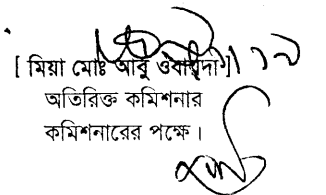 [ মিয়া মোঃ আবু ওবায়দা ]
অতিরিক্ত কমিশনার
কমিশনারের পক্ষে ।